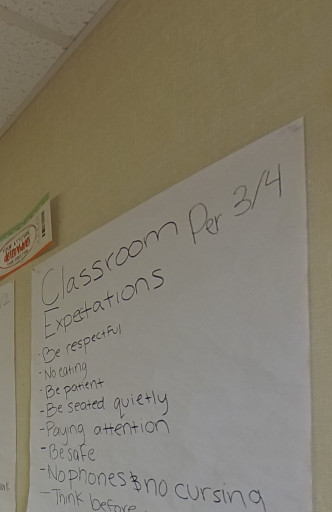 Classroom Per 3/4
Expetations
- Be respectful
- No eating
- Be patient
- Be seated quietly
- Paying attention
- Be safe
- No phones & no cursing
- Think before